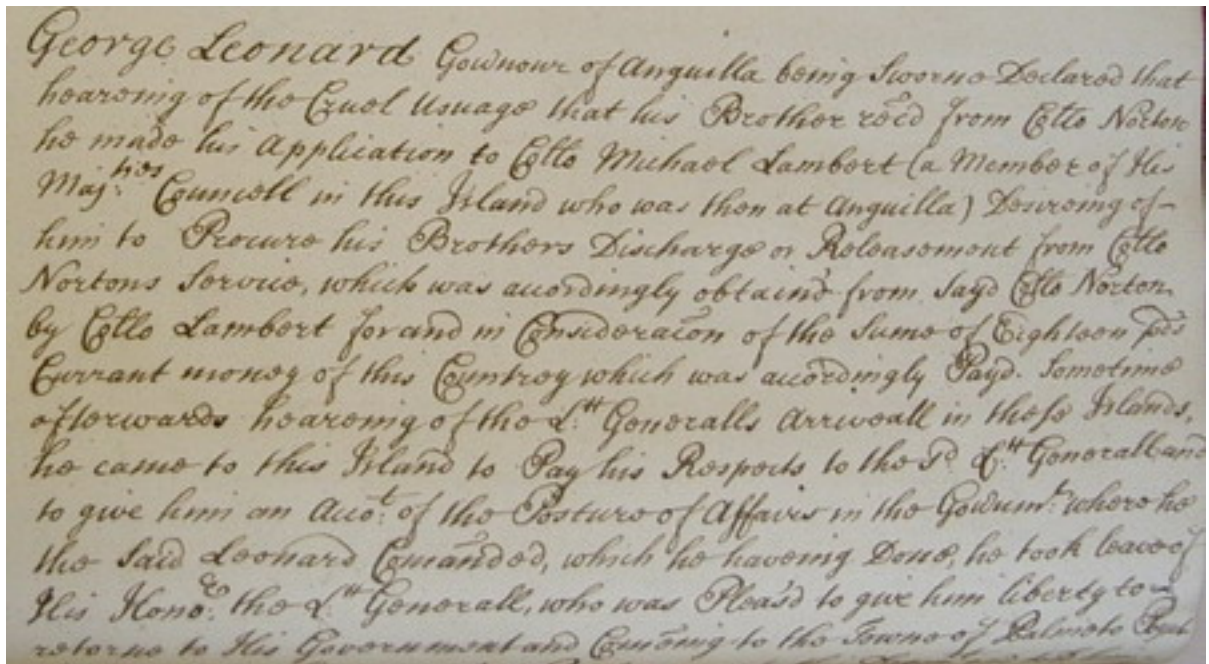 George Leonard Govrnour of Anguilla being Sworne Declared that
heareing of the Cruel Usuage that his Brother recd from Collo Norton
he made his Application to Collo Michael Lambert (a Member of His
Maj:ties Councell in this Island who was then at Anguilla) Desireing of
him to Procure his Brothers Discharge or Releasement from Collo
Nortons Service, which was accordingly obtaind from Sayd Collo Norton
by Collo Lambert for and in Consideracon of the Sume of Eighteen pds
Currant money of this Countrey which was accordingly Payd. Sometime
afterwards heareing of the Lt: Generalls Arriveall in these Islands,
he came to this Island to Pay his Respects to the Sd Lt: Generall and
to give him an Accot: of the Posture of Affairs in the Goverm:t where he
the Said Leonard Comanded, which he haveing Done, he took leave of
His Hono:r the Lt Generall, who was Pleas'd to give him liberty to
returne to His Government and Comeing to the Towne of Palmeto